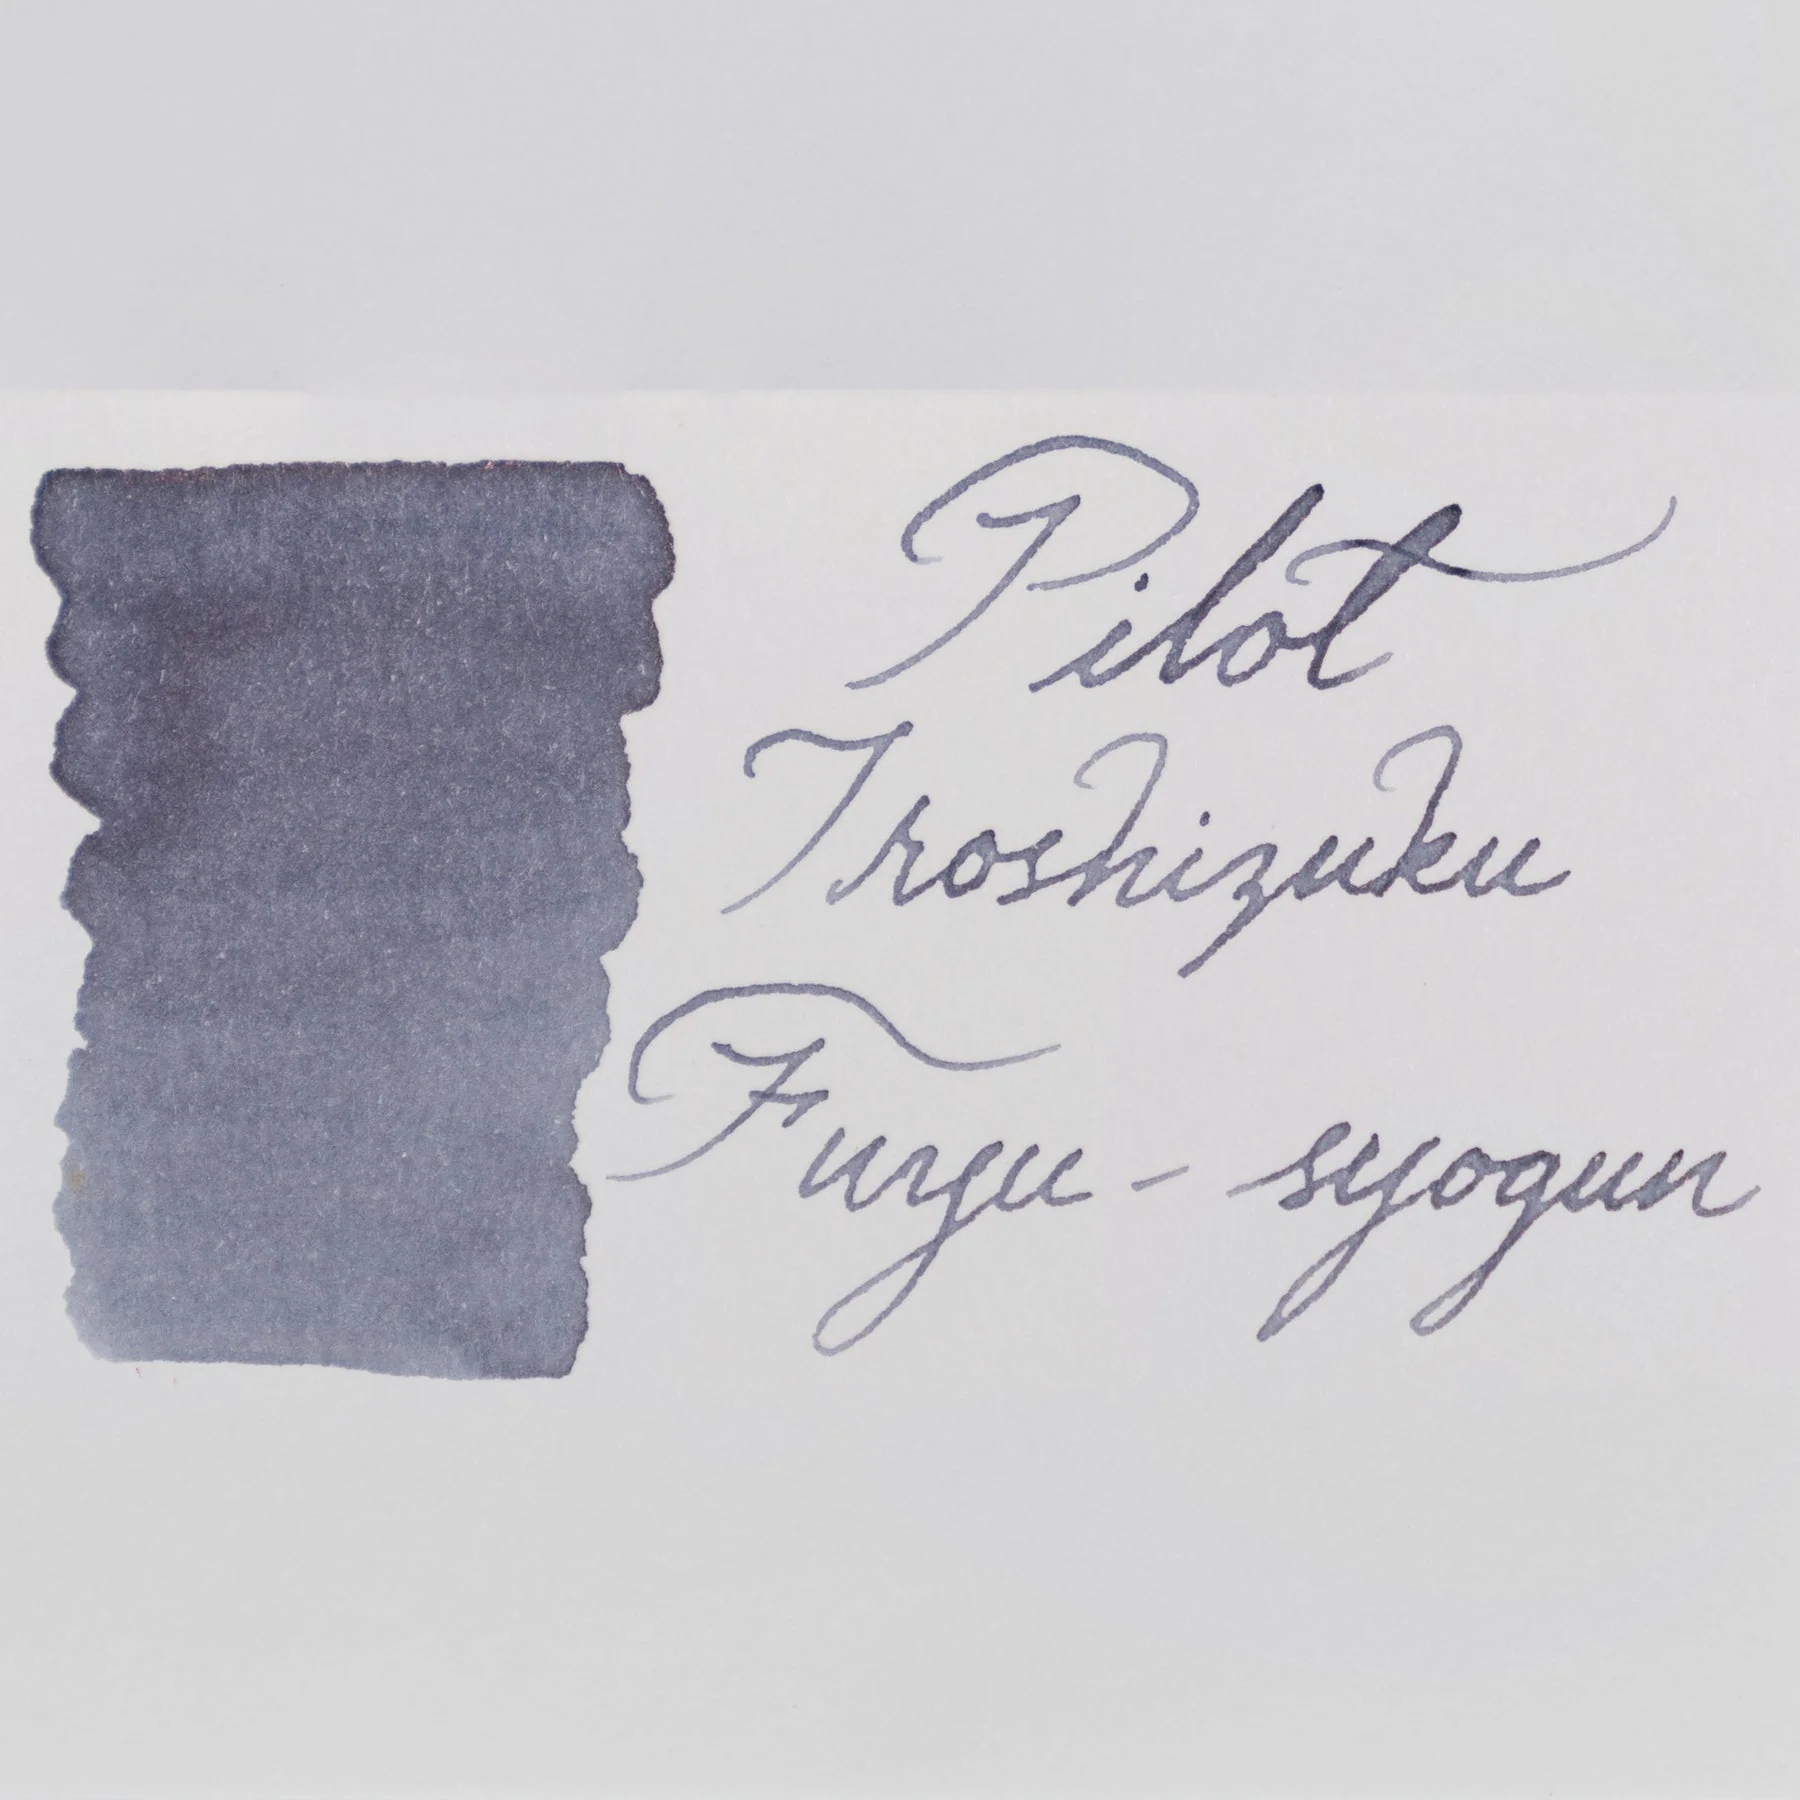 Pilot
Iroshizuku
Fuyu-syogun